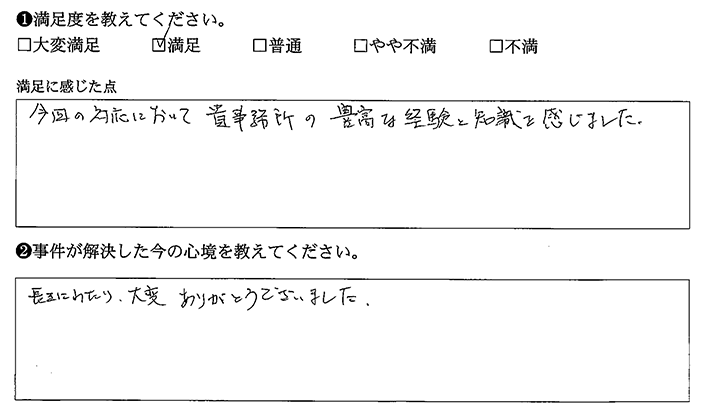 ❶満足度を教えてください。
□大変満足 ☑満足 □普通 □やや不満 □不満
満足に感じた点
今回の対応において 貴事務所の 豊富な経験と知識を感じました.
❷事件が解決した今の心境を教えてください。
にわたり、大変 ありがとうございました.